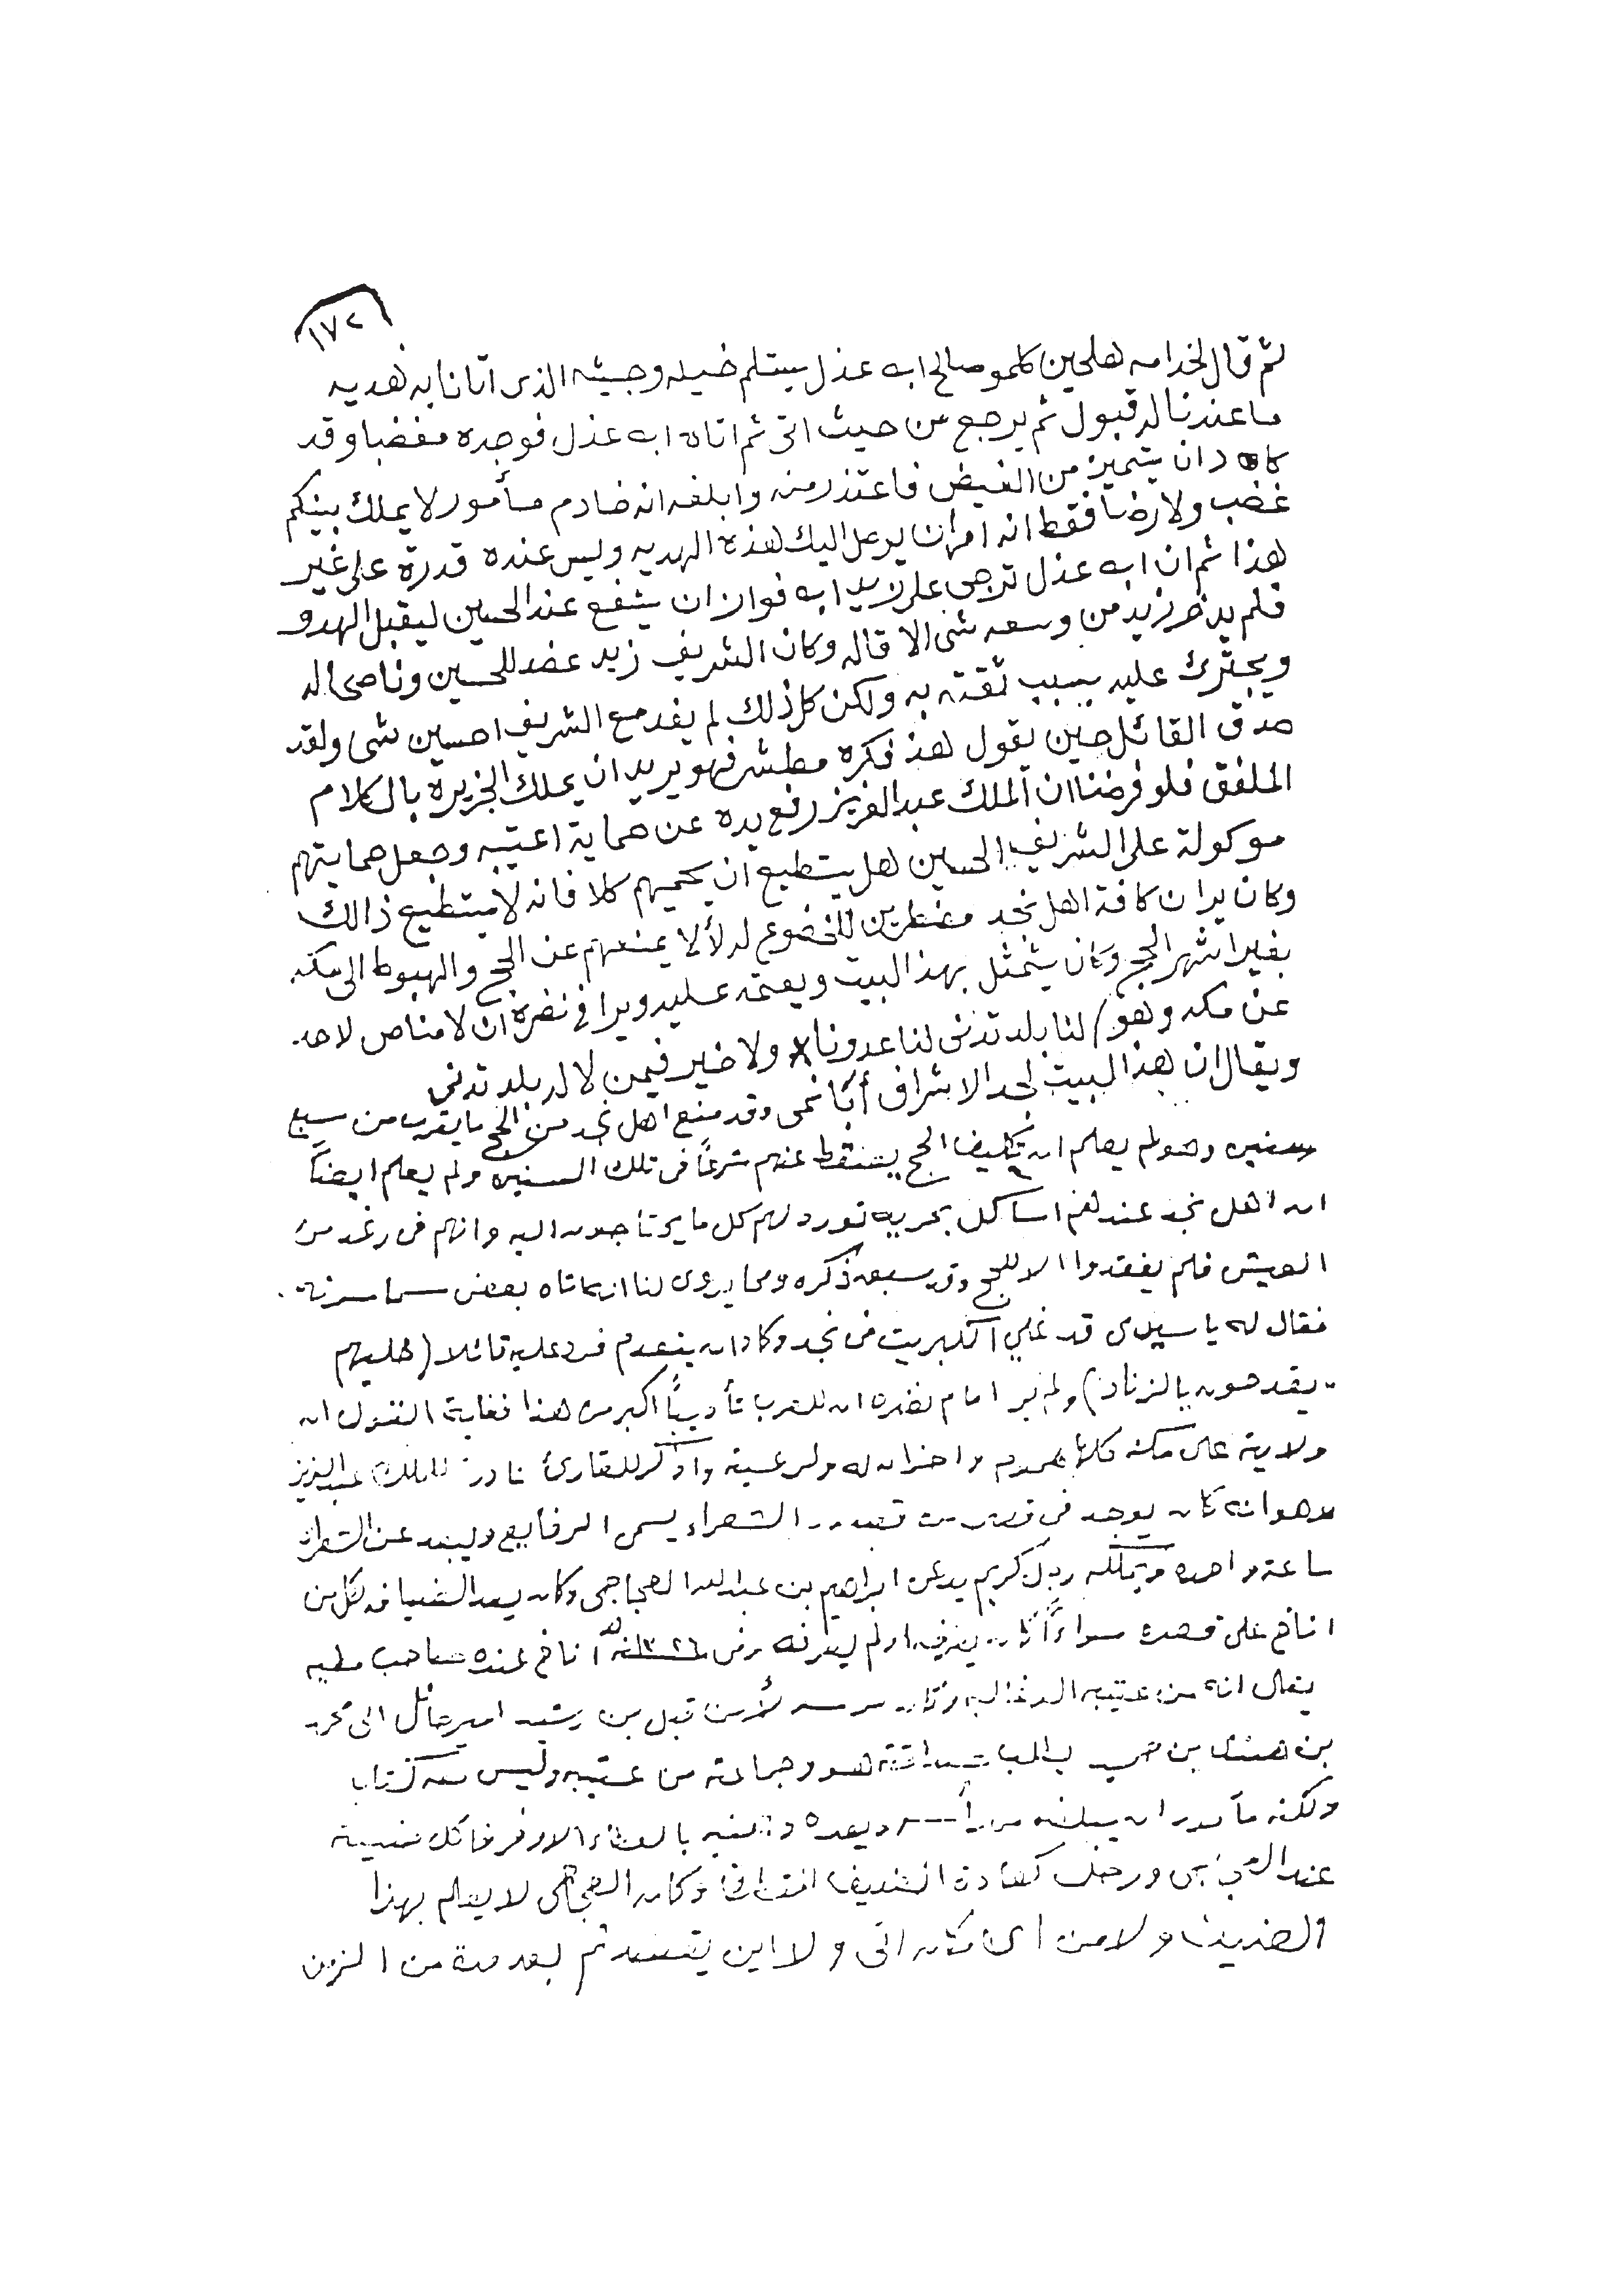 ١٧٢
ثم قال لخدامه هلحين كلمو صالح ابه عذل يستلم خيله وجيشه الذى اتانا به هديه
ما عندنا له قبول ثم يرجع من حيث اتى ثم اتاه ابه عذل فوجده مغضبا وقد
كاد ان يتميز من الغيض فاعتذر منه وابلغه انه خادم مأمور لا يملك بينكم
غضب ولا رضا فقط انه امر ان يوصل اليك هذه الهديه وليس عنده قدرة على غير
هذا ثم ان ابه عذل ترجى على زيد ابه فوزان ان يشفع عند الحسين ليقبل الهدو
فلم يدخر زيد من وسعه شى الا قاله وكان الشريف زيد عضد للحسين وناصحا له
ويجترئ عليه بسبب ثقته به ولكن كل ذلك لم يفد مع الشريف احسين شى ولقد
صدق القائل حين يقول هذ فكره مطشر فهو يريد ان يملك الجزيره بالكلام
الملفق فلو فرضنا ان الملك عبدالعزيز رفع يده عن حماية اعتيبه وجعل حمايتهم
موكولة على الشريف الحسين هل يستطيع ان يحميهم كلا فانه لا يستطيع ذالك
وكان يرا ن كافة اهل نجد مضطرين للخضوع له لألا يمنعهم عن الحج والهبوط الى مكه
بغير اشهر الحج وكان يتمثل بهذ البيت ويعتمد عليه ويرا في نضره ان لا مناص لاحد
عن مكه وهو / لنا بلد تدنى لنا عدونا * ولا خير فيمن لا له بلد تدنى
ويقال ان هذ البيت لجد الاشراف أبا نمى وقد منع اهل نجد من الحج ما يقرب من سبع
سنين وهو لم يعلم ان تكليف الحج يسقط عنهم شرعاً فى تلك السنين ولم يعلم ايضاً
ان اهل نجد عندهم اساكل بحريه تورد لهم كل ما يحتاجون اليه وانهم فى رغد من
العيش فلم يفقدوا الا للحج وقد سبق ذكره ومما يروى لنا انه اتاه بعض سماسرته
فقال له يا سيدى قد غلي الكبريت فى نجد وكاد ان ينعدم فرد عليه قائلا ( خليهم
يقدحون بالزناد ) ولم ير امام نضره ان للعرب تأديباً اكبر من هذا فغاية القول ان
ولاية على مكه كلها هموم واحزان له ولرعيته واذكر للقارئ نادرة للملك عبدالعزيز
وهو انه كان يوجد فى قصر من قصور الشعراء يسمى الرفايع ويبعد عن الشعراء
ساعة واحده ويملكه رجل كريم يدعى ابراهيم بن عبدالله العجاجى وكان يعد الضيافه لكل من
اناخ على قصره سواءً كان يعرفه او لم يعرفه وفى ١٣٢٦ سنه اناخ عنده صاحب مطيه
يقال انه من عتيبه وكان مرسولاً من قبل بن رشيد امير حائل الى محمد
بن هندى بن حميد هو وجماعته من عتيبه وليس معه كتاب
ولكنه مأمور ان يبلغه ويعده بالعطاء الاوفر فاكل ضيفته
عند العجاجى ورحل كعادة الضيف وكان العجاجى لا يعلم بهذا
الضيف ولا من اى مكان اتى ولا اين يقصد ثم بعد مدة من الزمن